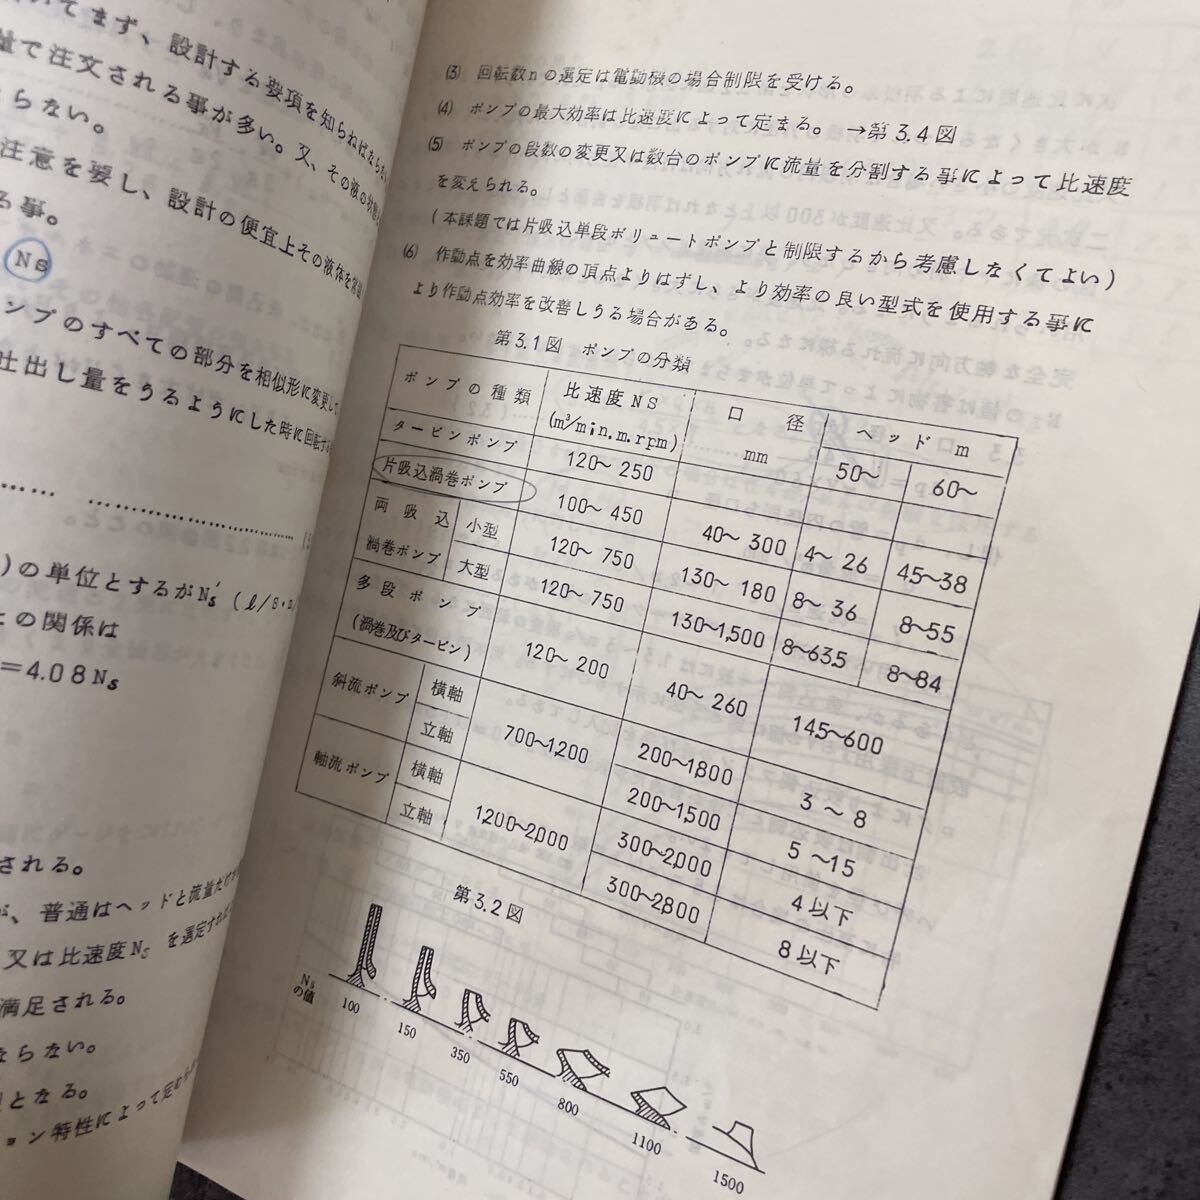 いてまず、設計する要項を知らねばならない
量で注文される事が多い。又、その液の状態
らない。
注意を要し、設計の便宜上その液体を常温
る事。
Ns
ンプのすべての部分を相似形に変更して、
仕出し量をうるようにした時に回転する
)の単位とするがNs′(ℓ/s・
との関係は
=4.08Ns
される。
が、普通はヘッドと流量だけが
又は比速度Ns を選定すれば
満足される。
ならない。
となる。
ョン特性によって定む
(3) 回転数nの選定は電動機の場合制限を受ける。
(4) ポンプの最大効率は比速度によって定まる。→第3.4図
(5) ポンプの段数の変更又は数台のポンプに流量を分割する事によって比速度
を変えられる。
(本課題では片吸込単段ボリュートポンプと制限するから考慮しなくてよい)
(6) 作動点を効率曲線の頂点よりはずし、より効率の良い型式を使用する事に
より作動点効率を改善しうる場合がある。
第3.1図 ポンプの分類
ポンプの種類 比速度NS (m³/min.m.rpm) 口径 mm ヘッド m
50~ 60~
タービンポンプ 120~250
片吸込渦巻ポンプ 100~450 40~300 4~26 4.5~38
両吸込渦巻ポンプ 小型 120~750 130~180 8~36 8~55
大型 120~750 130~1,500 8~63.5 8~84
多段ポンプ (渦巻及びタービン) 120~200 40~260 14.5~600
斜流ポンプ 横軸 700~1,200 200~1,800 3~8
立軸 200~1,500 5~15
軸流ポンプ 横軸 1,200~2,000 300~2,000 4以下
立軸 300~2,800 8以下
第3.2図
Nsの値
100
150
350
550
800
1100
1500